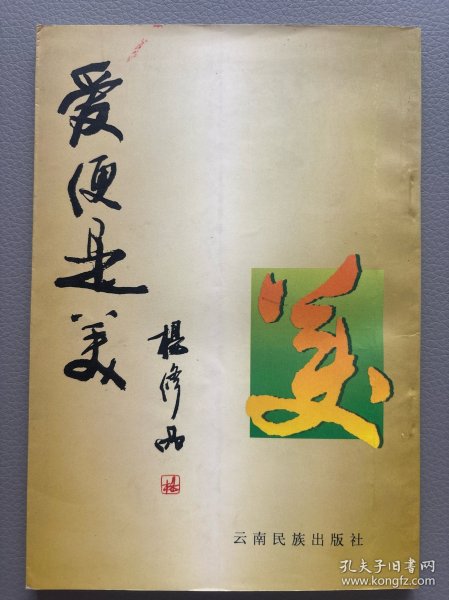 爱便是美
杨修品
杨
美
云南民族出版社
孔夫子旧书网
www.kongfz.com